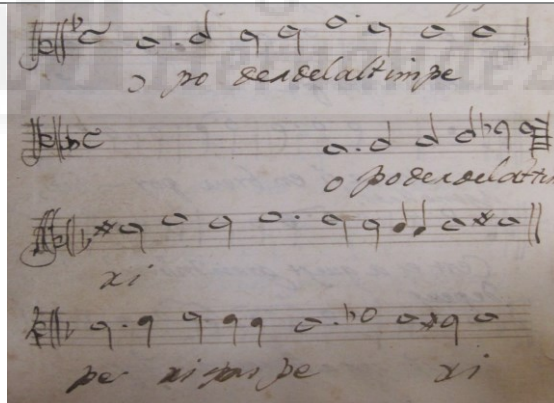 o po derdelaltimpe
o poderdelatim
xi
pe xi pe xi